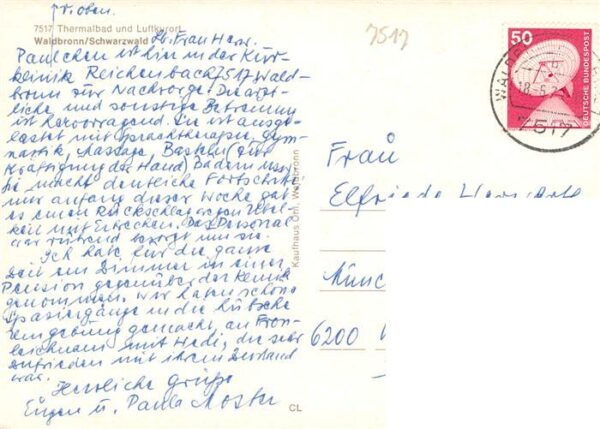 pr. oben.
7517 Thermalbad und Luftkurort
Waldbronn/Schwarzwald
Lb. Frau Herw.
Paulchen ist hier in der Kur-
klinik Reichenbach, 7517 Wald-
bronn zur Nachsorge. Die ärzt-
liche und sonstige Betreuung
ist hervorragend. Sie ist ausge-
lastet mit Sprachtherapie, Gym-
nastik, Massage, Basteln (zur
Kräftigung der Hand) Bädern usw.
Sie macht deutliche Fortschritte
nur anfang dieser Woche gab
es einen Rückschlag wegen Übel-
keit mit Erbrechen. Das Personal
war rührend besorgt um sie.
Ich habe für die ganze
Zeit ein Zimmer in einer
Pension gegenüber der Klinik
genommen. Wir haben schon
Spaziergänge in die hübsche
Umgebung gemacht, an Fron-
leichnam mit Hedi, die sehr
zufrieden mit ihrem Zustand
war.
Herzliche Grüße
Eugen u. Paula Moster
CL
Kaufhaus Uhl, Waldbronn
7517
50
DEUTSCHE BUNDESPOST
7517
Frau
Elfriede
Münc
6200